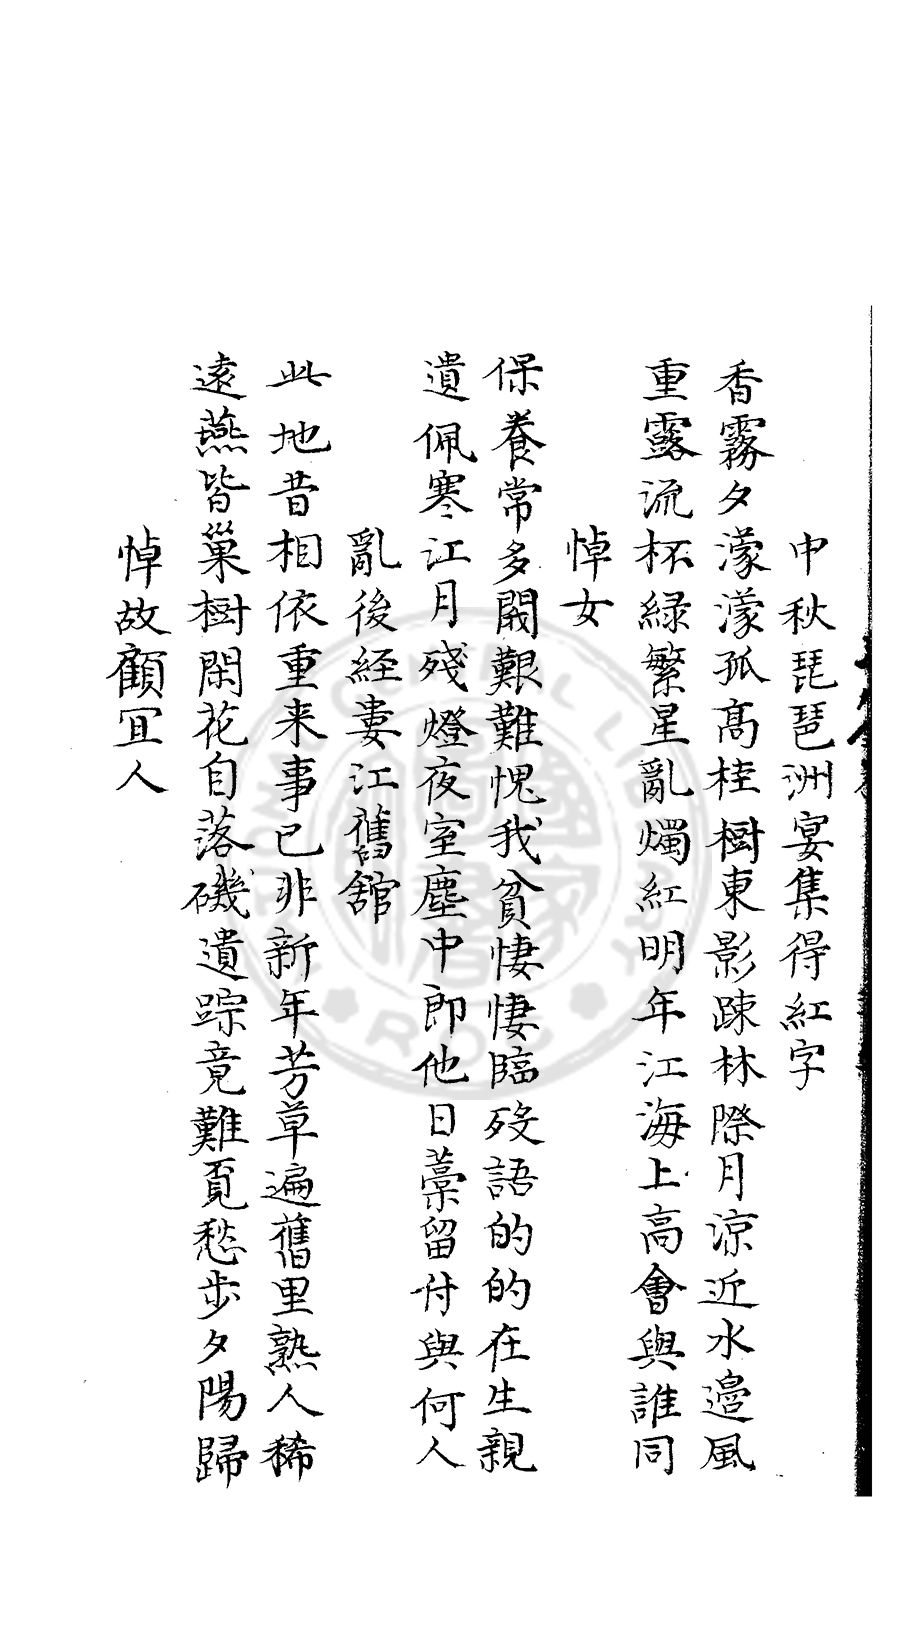 中秋琵琶洲宴集得紅字
香霧夕濛濛孤高桂樹東影疎林際月涼近水邉風
重露流杯緑繁星亂燭紅明年江海上高會與誰同
悼女
保養常多闕艱難愧我貧悽悽臨歿語的的在生親
遺佩寒江月殘燈夜室塵中郎他日藁留付與何人
亂後経婁江舊舘
此地昔相依重来事已非新年芳草遍舊里熟人稀
逺燕皆巢樹閑花自落磯遺踪竟難覓愁步夕陽歸
悼故顧冝人